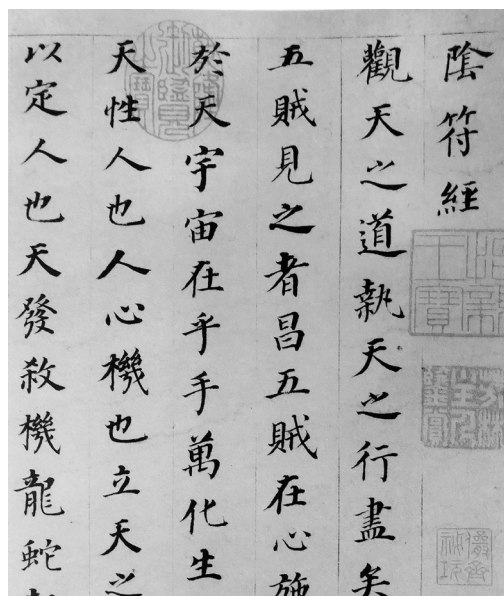 陰符經
觀天之道執天之行盡矣
五賊見之者昌五賊在心施
於天宇宙在乎手萬化生
天性人也人心機也立天之
以定人也天發殺機龍蛇